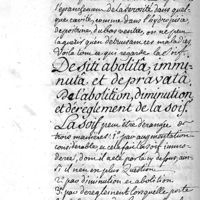 l'epanchement de la serosité dans quel
que cavité, comme dans l'hydropisie
de poitrine, du bas ventre, on ne peut
la guerir qu'en detruisant ces maladies
Voila tout ce qui regarde la Soif
De siti abolitâ, immi-
nutâ et depravatâ
De l'abolition, diminution
et déreglement de la soif
La Soif peut être dérangée de
trois manieres: 1° par augmentation
considerable, & cela fait la soif immo-
derée, dont il a été parlé cy dessus, ainsi
il n'en est plus question.
2° par diminution & abolition.
3° par dereglement lorsqu'elle porte